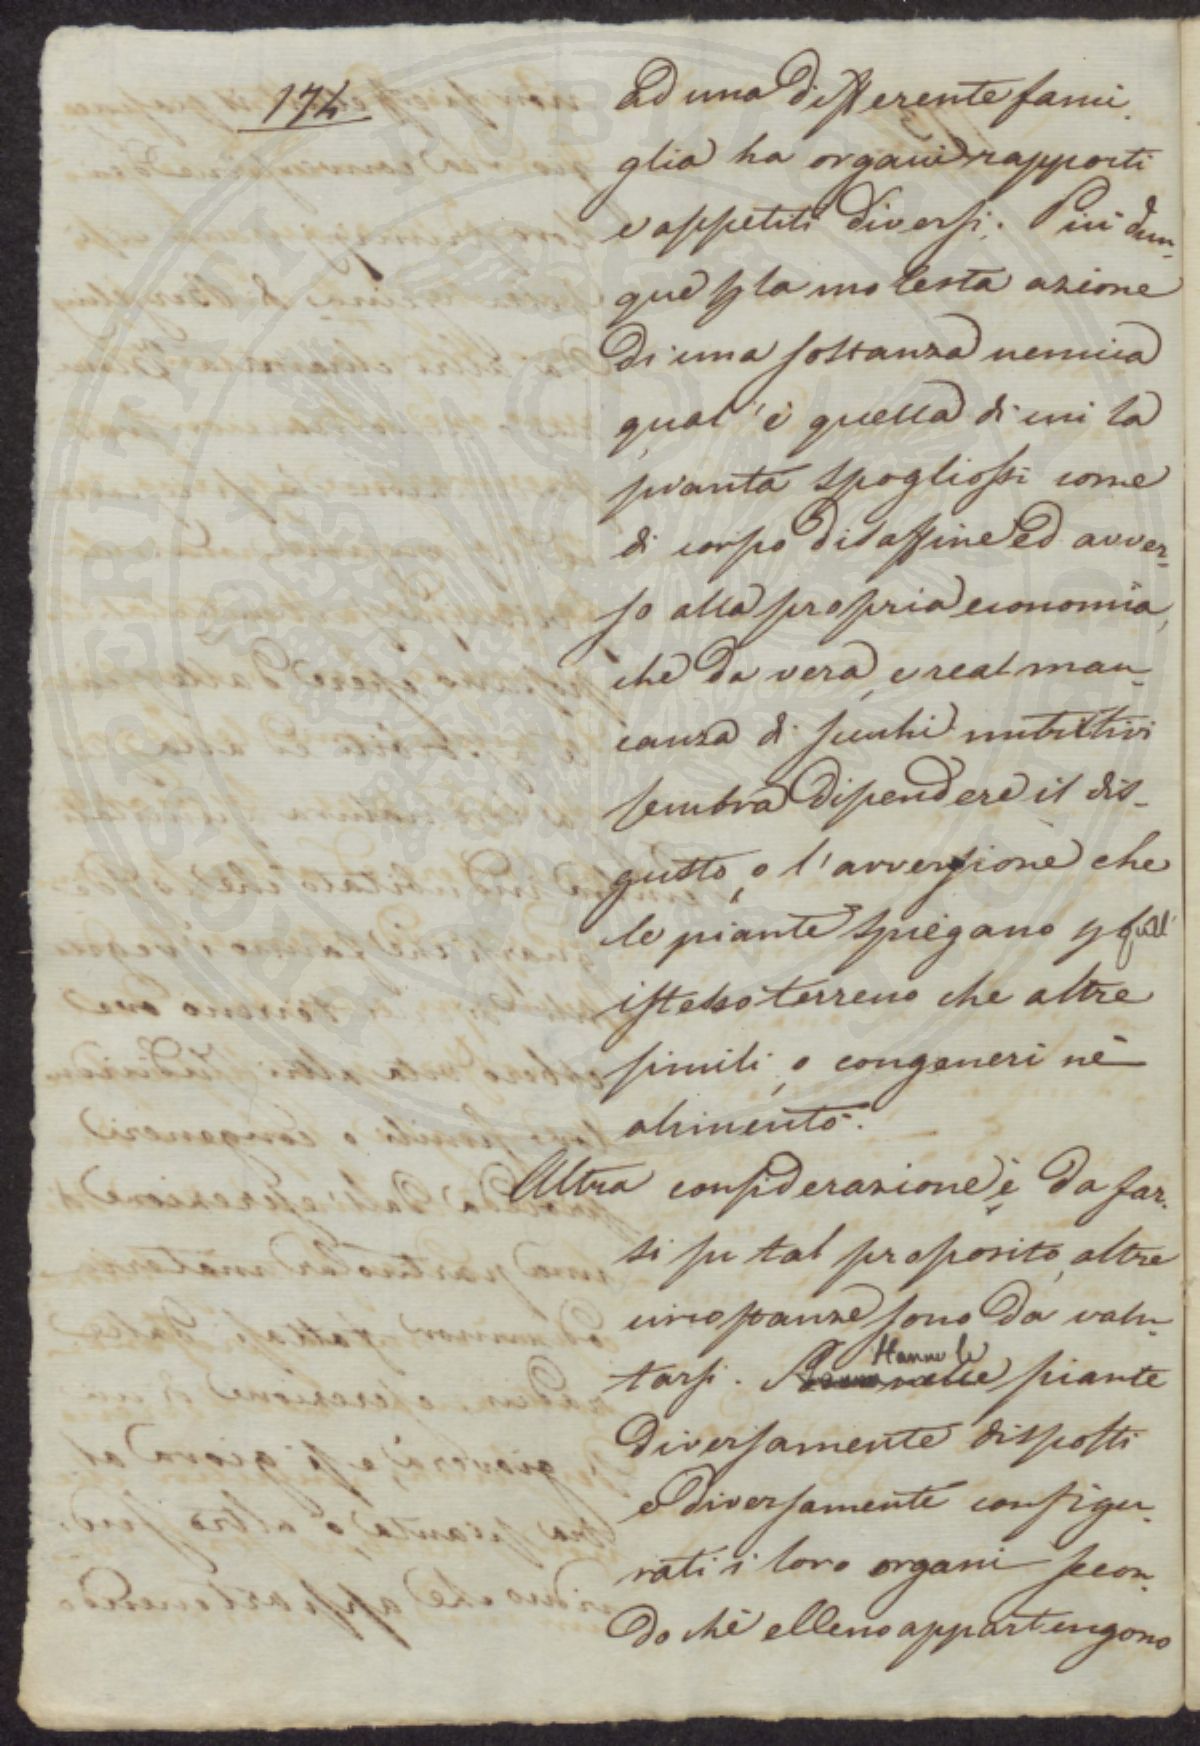 174
ad una differente fami-
glia ha organi rapporti
e appetiti diversi. Più dun-
que p la molesta azione
di una sostanza nemica
qual'è quella di cui la
pianta spogliossi come
di corpo disaffine ed avver-
so alla propria economia,
che da vera, e real man-
canza di succhi nutritivi
sembra dipendere il dis-
gusto, o l'avversione che
le piante spiegano p quell'
istesso terreno che altre
simili, o congeneri nè
alimentò.
Altra considerazione è da far-
si su tal proposito, altre
circostanze sono da valu-
tarsi. Hanno le piante
diversamente disposti
e diversamente configu-
rati i loro organi secon-
do chè elleno appartengono